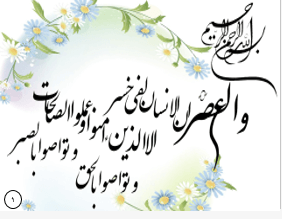 بسم الله الرحمن الرحیم
والعصر ان الانسان لفی خسر
الا الذین امنوا و عملوا الصالحات
و تواصوا بالحق
و تواصوا بالصبر
۱